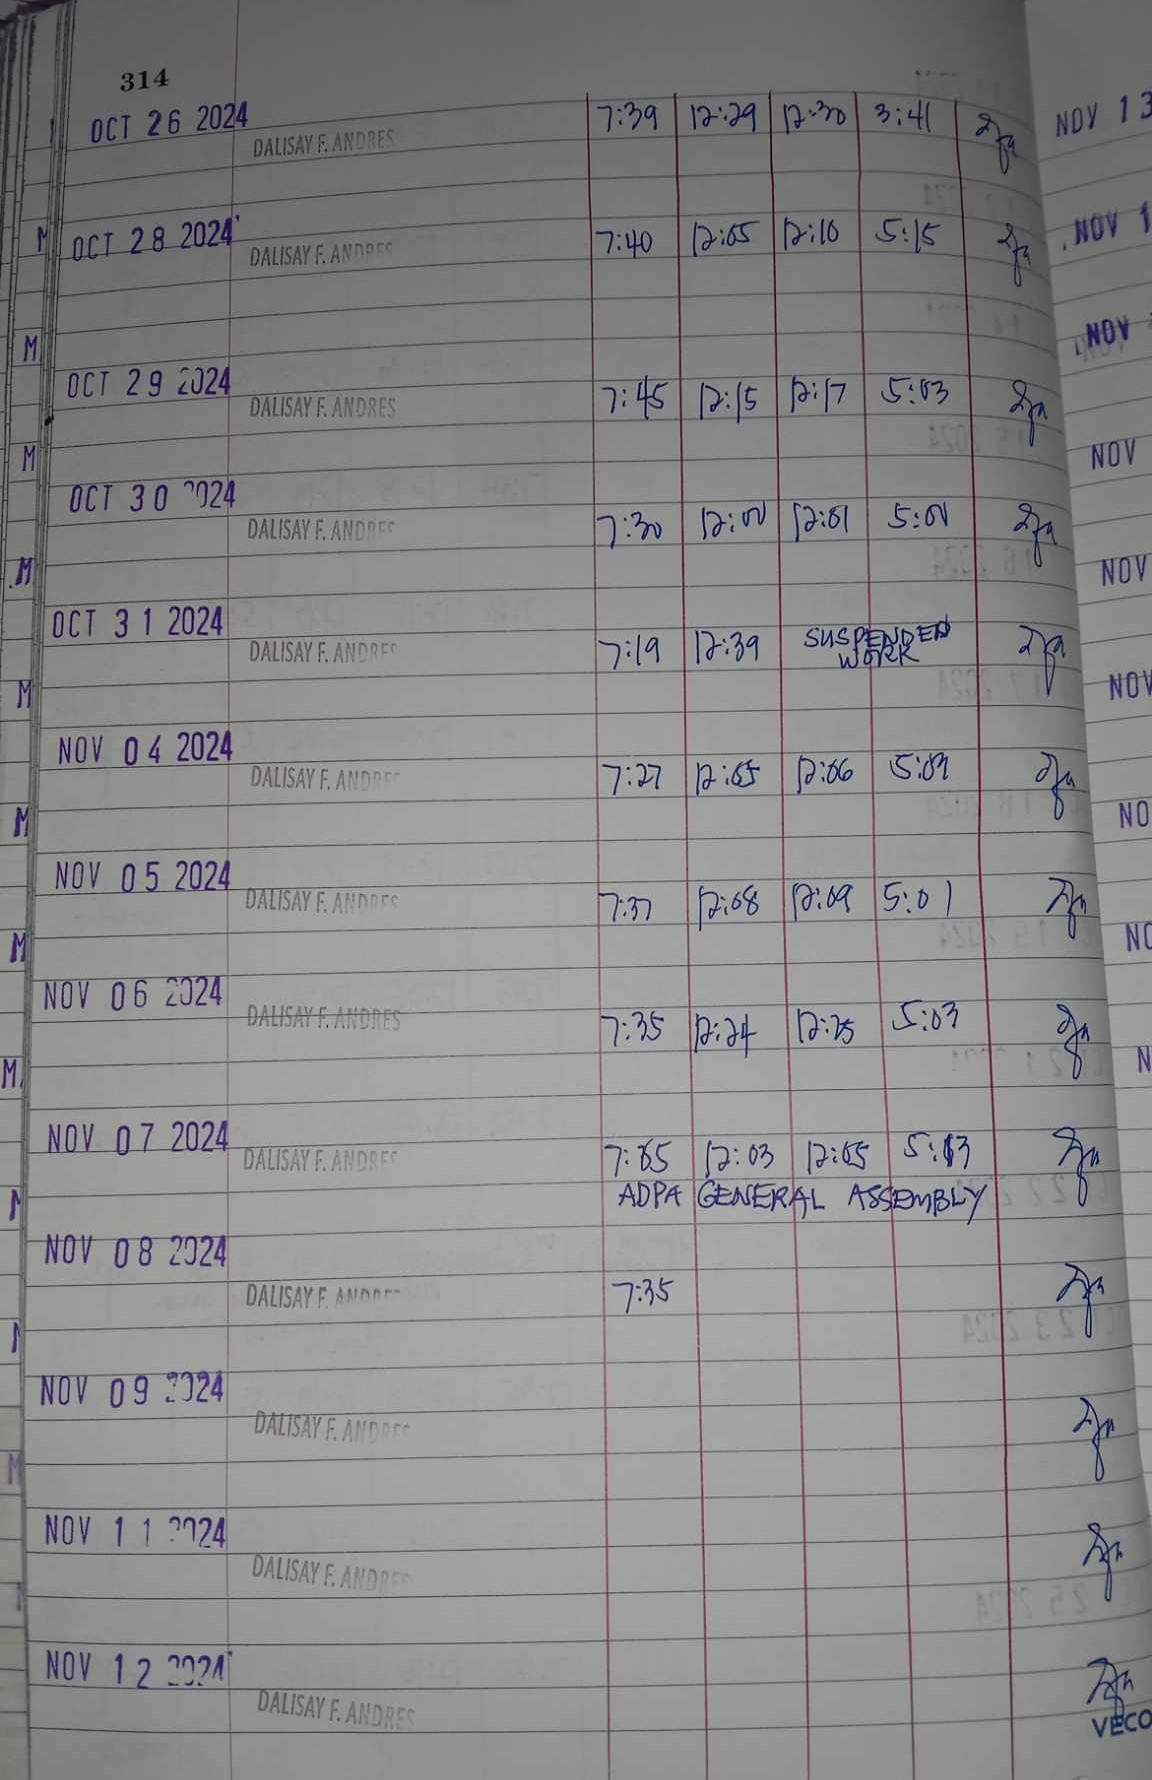 314
OCT 26 2024
DALISAY F. ANDRES 7:39 12:29 12:30 3:41
OCT 28 2024
DALISAY F. ANDRES 7:40 12:05 12:10 5:15
OCT 29 2024
DALISAY F. ANDRES 7:45 12:15 12:17 5:03
OCT 30 2024
DALISAY F. ANDRES 7:30 12:00 12:01 5:01
OCT 31 2024
DALISAY F. ANDRES 7:19 12:39 SUSPENDED
WORK
NOV 04 2024
DALISAY F. ANDRES 7:27 12:05 12:06 5:09
NOV 05 2024
DALISAY F. ANDRES 7:37 12:08 12:09 5:01
NOV 06 2024
DALISAY F. ANDRES 7:35 12:24 12:25 5:03
NOV 07 2024
DALISAY F. ANDRES 7:05 12:03 12:05 5:13
ADPA GENERAL ASSEMBLY
NOV 08 2024
DALISAY F. ANDRES 7:35
NOV 09 2024
DALISAY F. ANDRES
NOV 11 2024
DALISAY F. ANDRES
NOV 12 2024
DALISAY F. ANDRES
NOV 13
NOV 1
NOV
NOV
NOV
NOV
NO
NO
N
VECO